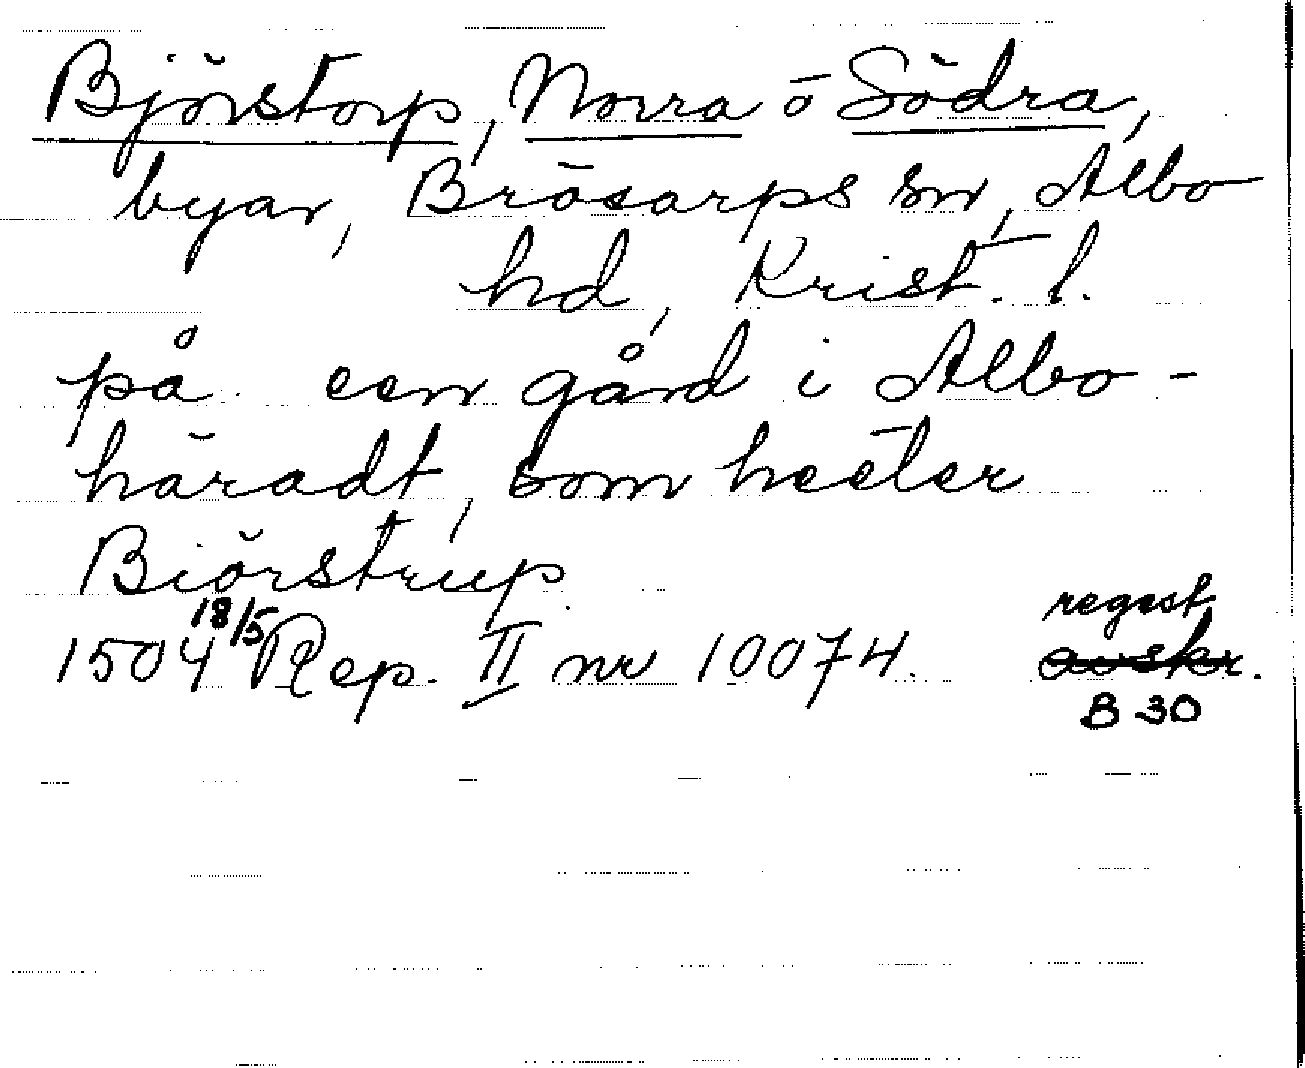 Björstorp, Norra o Södra,
byar, Brösarps sn, Albo
hd, Krist. l.
på een gård i Albo-
häradt, som heeter
Biörstrup
1504 18/5 Rep. II nr 10074. regest
avskr.
B 30